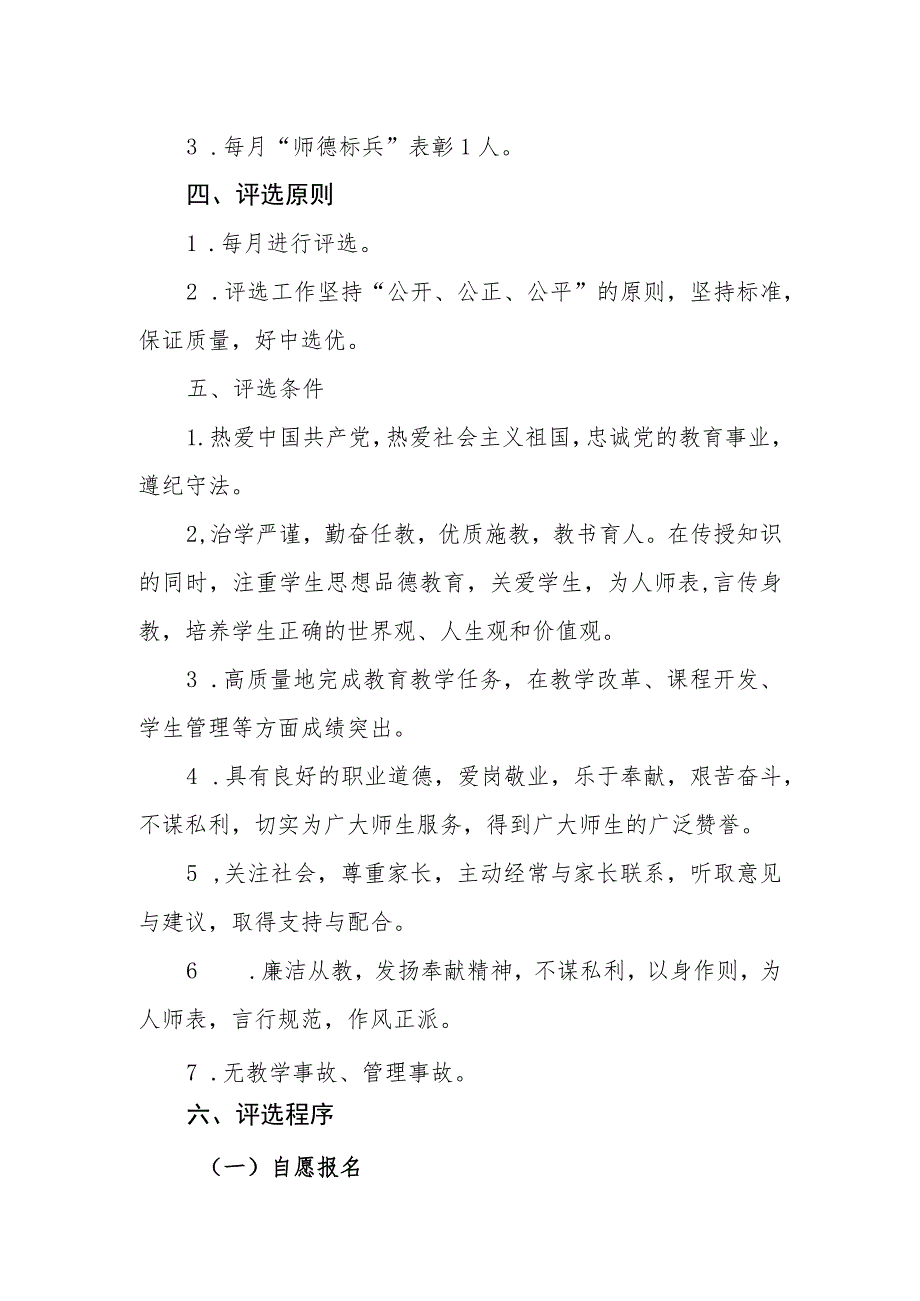 3 .每月“师德标兵”表彰1人。
四、评选原则
1 .每月进行评选。
2 .评选工作坚持“公开、公正、公平”的原则，坚持标准，
保证质量，好中选优。
五、评选条件
1.热爱中国共产党,热爱社会主义祖国,忠诚党的教育事业，
遵纪守法。
2,治学严谨，勤奋任教，优质施教，教书育人。在传授知识
的同时，注重学生思想品德教育，关爱学生，为人师表,言传身
教，培养学生正确的世界观、人生观和价值观。
3 .高质量地完成教育教学任务，在教学改革、课程开发、
学生管理等方面成绩突出。
4 .具有良好的职业道德，爱岗敬业，乐于奉献，艰苦奋斗，
不谋私利，切实为广大师生服务，得到广大师生的广泛赞誉。
5 ,关注社会，尊重家长，主动经常与家长联系，听取意见
与建议，取得支持与配合。
6 .廉洁从教，发扬奉献精神，不谋私利，以身作则，为
人师表，言行规范，作风正派。
7 .无教学事故、管理事故。
六、评选程序
（一）自愿报名